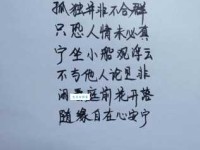 孤独并非不合群
只恐人情未必真
宁坐小船观浮云
不与他人论是非
闲 庭前花开落
随缘自在心安宁